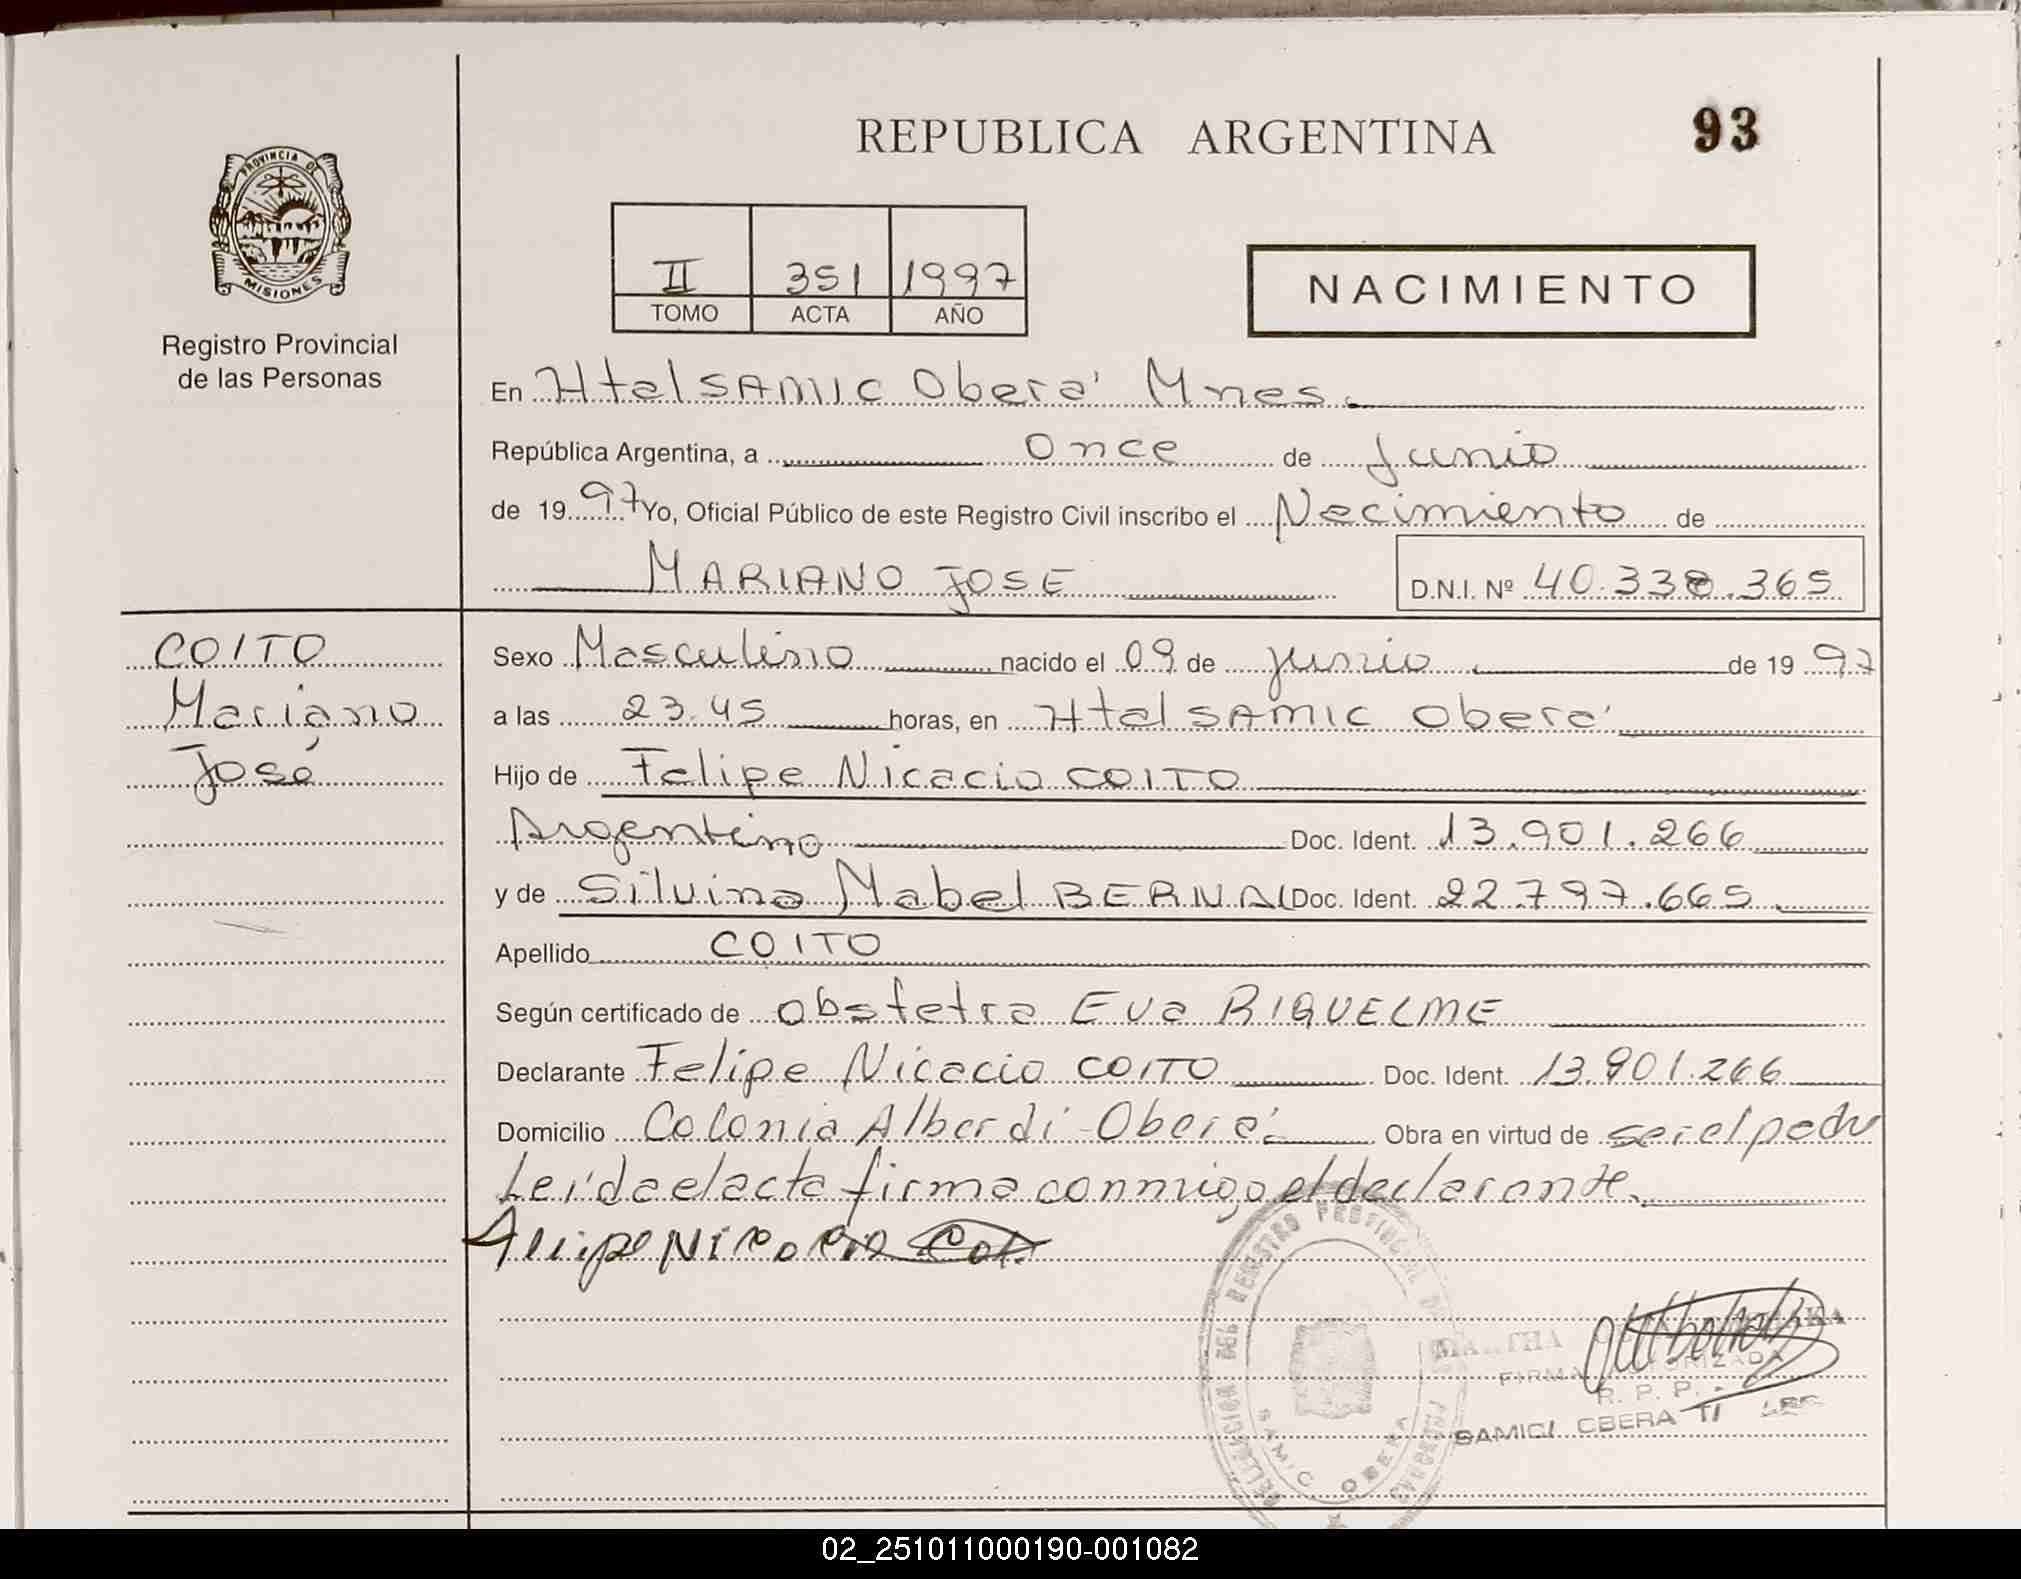 REPUBLICA ARGENTINA
93
PROVINCIA DE
MISIONES
Registro Provincial
de las Personas
II 351 1997
TOMO ACTA AÑO
NACIMIENTO
En Htal SAMIC Oberá Mnes.
República Argentina, a Once de Junio
de 1997 Yo, Oficial Público de este Registro Civil inscribo el Nacimiento de
MARIANO JOSE D.N.I. Nº 40.338.365
COITO
Mariano
José
Sexo Masculino nacido el 09 de junio de 1997
a las 23.45 horas, en Htal SAMIC Oberá
Hijo de Felipe Nicacio COITO
Argentino Doc. Ident. 13.901.266
y de Silvina Mabel BERNAL Doc. Ident. 22.797.665
Apellido COITO
Según certificado de obstetra Eva RIQUELME
Declarante Felipe Nicacio COITO Doc. Ident. 13.901.266
Domicilio Colonia Alberdi - Oberá Obra en virtud de ser el padre
Leída el acta firma conmigo el declarante.
Felipe Nicacio
DELEGACION DEL REGISTRO PROVINCIAL DE LAS PERSONAS
SAMIC OBERA
FIRMA AUTORIZADA
R. P. P.
SAMIC OBERA
02_251011000190-001082